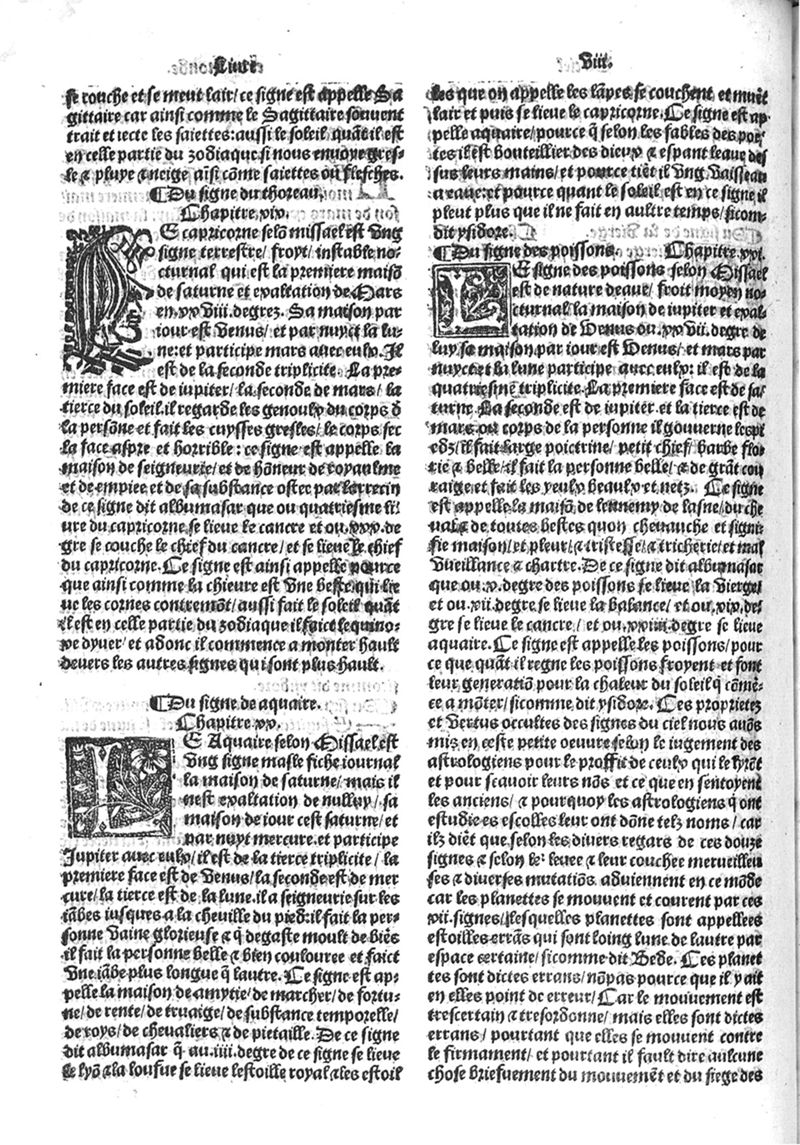 Livre
Viii.
se couche et se meut lair/ ce signe est appelle Sa
gittaire car ainsi comme le Sagittaire souuent
trait et iecte les saiettes: aussi le soleil quāt il est
en celle partie du zodiaque, si nous enuoye gres-
le & pluye & neige aīsi cōme saiettes ou flesches.
¶ Du signe du thoreau.
Chapitre.xix.
LE capricorne selō missael est Vng
signe terrestre/ froyt/ instable no-
cturnal qui est la premiere maisō
de saturne et exaltation de Mars
en .xxViii.degrez. Sa maison par
iour est Venus/ et par nuyct la lu-
ne: et participe mars auec eulx. Il
est de la seconde triplicite. La pre-
miere face est de iupiter/ la seconde de mars/ la
tierce du soleil. il regarde les genoulx du corps d̄
la persōne et fait les cuysses gresles/ le corps sec
la face aspre et horrible: ce signe est appelle la
maison de seigneurie/ et de hōneur de royaulme
et de empiee et de sa substance
de ce signe dit albumasar que ou quatriesme li-
ure du capricorne, se lieue le cancre et ou.xxx.de
gre se couche le chief du cancre/ et se lieue le chief
du capricorne. Ce signe est ainsi appelle pource
que ainsi comme la chieure est Vne beste qui lie
ue les cornes contremōt/ aussi fait le soleil quāt
il est en celle partie du zodiaque il faict lequino-
xe dyuer/ et adonc il commence a monter hault
deuers les autres signes qui sont plus hault.
¶ Du signe de aquaire.
Chapitre.xx.
LE Aquaire selon Missael est
Vng signe masle fiche iournal
la maison de saturne/ mais il
nest exaltation de nulluy/ sa
maison de iour cest saturne/ et
par nuyt mercure. et participe
Jupiter auec eulx/ il est de la tierce triplicite/ la
premiere face est de Venus/ la seconde est de mer
cure/ la tierce est de la lune. il a seigneurie sur les
iābes iusques a la cheuille du pied: il fait la per-
sonne Vaine glorieuse & q̄ degaste moult de biēs
il fait la personne belle & bien coulouree et faict
Vne iābe plus longue q̄ lautre. Ce signe est ap-
pelle la maison de amytie/ de marcher/ de fortu-
ne/ de rente/ de truaige/ de substance temporelle/
de roys/ de cheualiers & de pietaille. De ce signe
dit albumasar q̄ au.iiii.degre de ce signe se lieue
le lyō & la loufue se lieue lestoille royal & les estoil
les que on appelle les lāpes se couchent et muēt
lair et puis se lieue le capricorne. Ce signe est ap-
pelle aquaire/ pource q̄ selon les fables des poe-
tes il est bouteillier des dieux & espant leaue des
sus leurs mains/ et pource tiēt il Vng Vaisseau
a eaue. et pource quant le soleil est en ce signe il
pleut plus que il ne fait en aultre temps/ sicom-
dit ysidore.
¶ Du signe des poissons. Chapitre.xxi.
LE signe des poissons selon Missael
est de nature deaue/ froit moyen no-
cturnal la maison de iupiter et exal
tation de Venus ou.xxVii.degre de
luy, sa maison par iour est Venus/ et mars par
nuyct et la lune participe auec eulx: il est de la
quatriesme triplicite. La premiere face est de sa/
turne. La seconde est de iupiter. et la tierce est de
mars. ou corps de la personne il gouuerne les pi
edz/ il fait large poictrine/ petit chief/ barbe flo
rie & belle/ il fait la personne belle/ & de grāt cou
raige et fait les yeulx beaulx et netz. Ce signe
est appelle la maisō de lennemy de lasne/ du che
ual & de toutes bestes quon cheuauche et signi-
fie maison/ et pleur/ & tristesse/ & tricherie/ et mal
Vueillance & chartre. De ce signe dit albumasar
que ou.x.degre des poissons se lieue la Vierge/
et ou.xii.degre se lieue la balance/ et ou.xix.de/
gre se lieue le cancre/ et ou.xxiii.degre se lieue
aquaire. Ce signe est appelle les poissons/ pour
ce que quāt il regne les poissons froyent et font
leur generatiō pour la chaleur du soleil q̄ cōmē-
ce a mōter/ sicomme dit ysidore. Ces proprietez
et Vertus occultes des signes du ciel nous auōs
mis en ceste petite oeuure selon le iugement des
astrologiens pour le proffit de ceulx qui le lyrōt
et pour scauoir leurs nōs et ce que en sentoyent
les anciens/ & pourquoy les astrologiens q̄ ont
estudie es escolles leur ont dōne telz noms/ car
ilz diēt que selon les diuers regars de ces douze
signes & selon le leuee & leur couchee merueilleu
ses & diuerses mutatiōs aduiennent en ce mōde
car les planettes se mouuent et courent par ces
xii.signes/ lesquelles planettes sont appellees
estoilles errās qui sont loing lune de lautre par
espace certaine/ sicomme dit Bede. Ces planet
tes sont dictes errans/ nōpas pource que il y ait
en elles point de erreur/ Car le mouuement est
trescertain & tresordonne/ mais elles sont dictes
errans/ pourtant que elles se mouuent contre
le firmament/ et pourtant il fault dire aulcune
chose briefuement du mouuemēt et du siege des